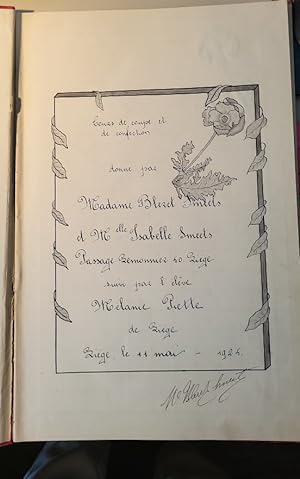 Cours de coupe et
de confection
donné par
Madame Blezel Smeets
et M elle Isabelle Smeets
Passage Lemonnier 40 Liège
suivi par l'élève
Mélanie Piette
de Liège
Liège, le 11 mai - 1924.